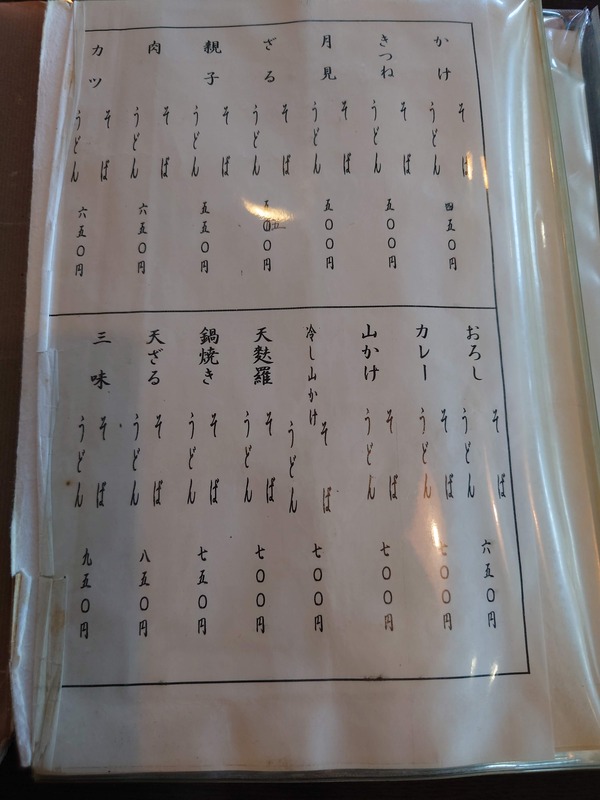 かけ そば うどん 四五〇円
きつね そば うどん 五〇〇円
月見 そば うどん 五〇〇円
ざる そば うどん
親子 そば うどん 五五〇円
肉 そば うどん 六五〇円
カツ そば うどん 六五〇円
おろし そば うどん 六五〇円
カレー そば うどん 七〇〇円
山かけ そば うどん 七〇〇円
冷し山かけ そば うどん 七〇〇円
天麩羅 そば うどん 七〇〇円
鍋焼き そば うどん 七五〇円
天ざる そば うどん 八五〇円
三味 そば うどん 九五〇円